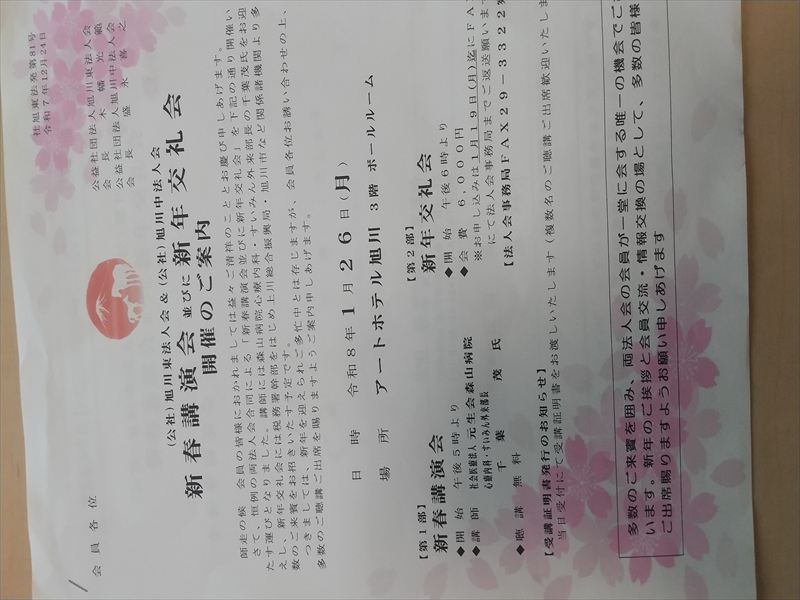 旭東法発第81号
令和7年12月24日
会員各位
公益社団法人旭川東法人会
会長
公益社団法人旭川中法人会
会長 盛永喜之
(公社)旭川東法人会&(公社)旭川中法人会
新春講演会並びに新年交礼会
開催のご案内
師走の候 会員の皆様におかれましては益々ご清祥のこととお慶び申しあげます。
さて、恒例の両法人会合同による「新春講演会並びに新年交礼会」を下記の通り開催い
たす運びとなりました。講師には森山病院心療内科・すいみん外来部長の千葉茂氏をお迎
えし、新年交礼会には税務署幹部をはじめ上川総合振興局・旭川市など関係諸機関より多
数のご来賓をお招きいたす予定です。
つきましては、新年を迎えられご多忙中とは存じますが、会員各位お誘い合わせの上、
多数のご聴講ご出席を賜りますようご案内申しあげます。
日時 令和8年1月26日(月)
場所 アートホテル旭川 3階 ボールルーム
【第1部】
新春講演会
◆開始 午後5時より
◆講師 社会医療法人元生会森山病院
心療内科・すいみん外来部長
千葉 茂 氏
◆聴講 無料
【第2部】
新年交礼会
◆開始 午後6時より
◆会費 6,000円
※お申し込みは1月19日(月)迄にFA
にて法人会事務局までご返送願いま
【法人会事務局FAX29-3322
【受講証明書発行のお知らせ】
当日受付にて受講証明書をお渡しいたします(複数名のご聴講ご出席歓迎いたしま
多数のご来賓を囲み、両法人会の会員が一堂に会する唯一の機会でご
います。新年のご挨拶と会員交流・情報交換の場として、多数の皆様
ご出席賜りますようお願い申しあげます